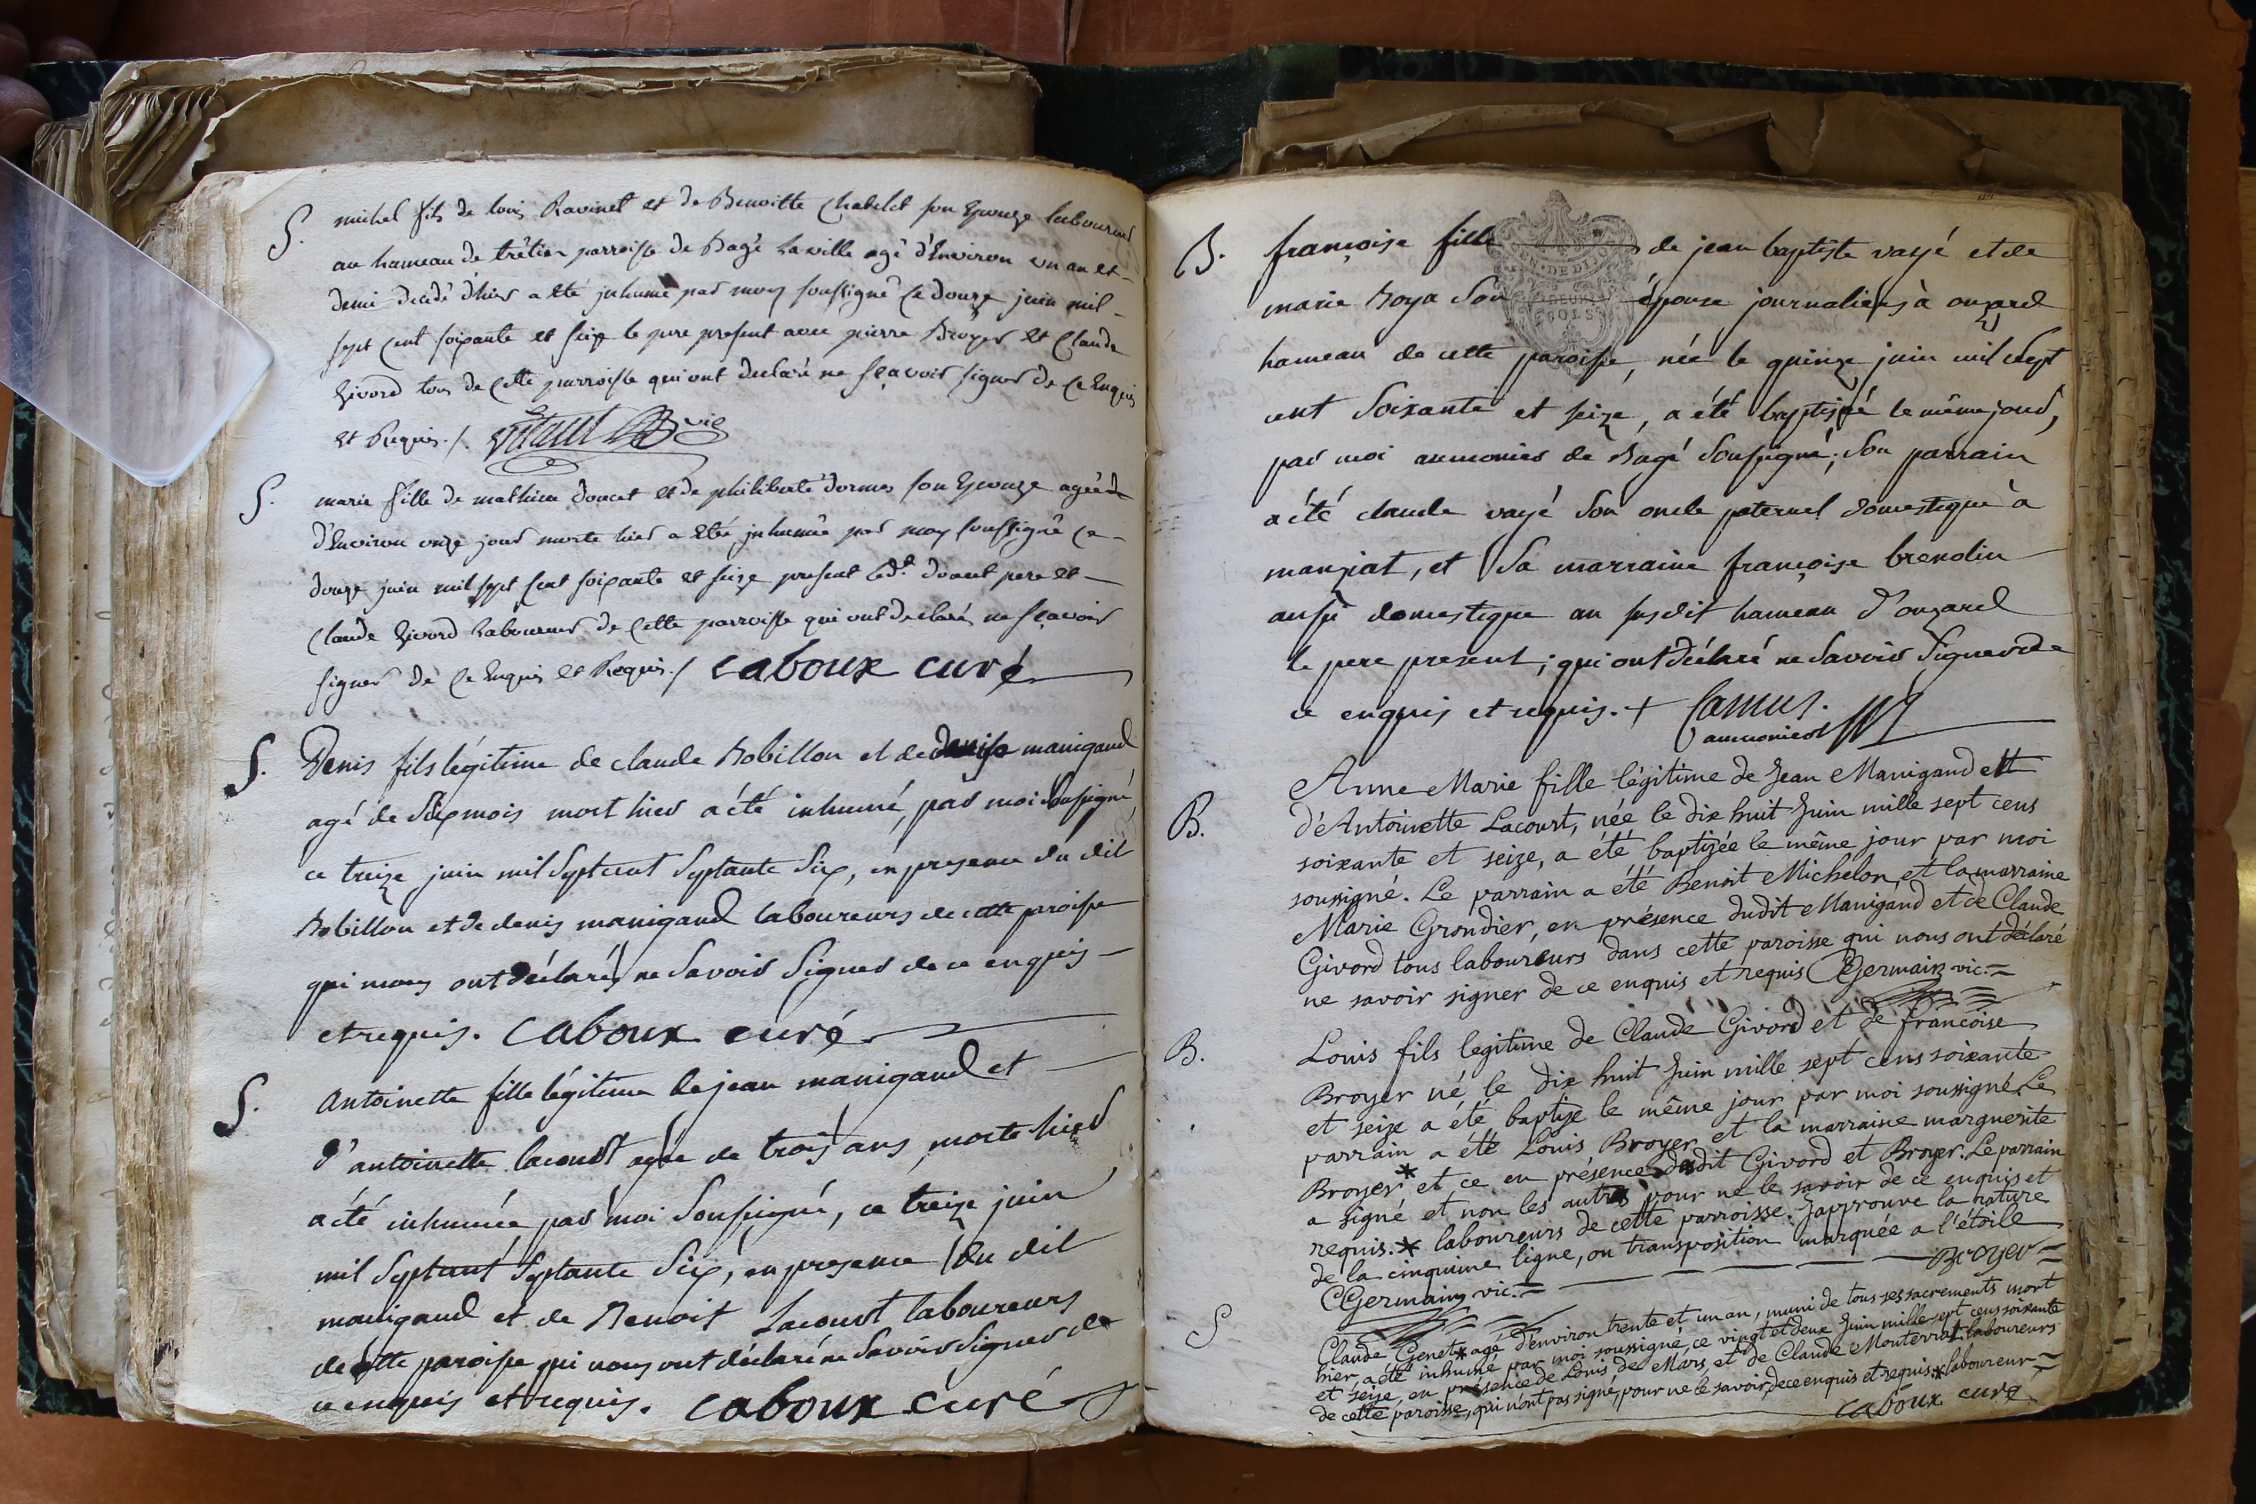 S. michel fils de louis Ravinet et de Benoitte Chatelet son Epouze laboureur
au hameau de trêtien parroisse de Bagé La ville agé d'Environ un an et
demi decedé d'hier a Eté inhumé par moy soussigné Ce douze juin mil
sept Cent soixante et seize le pere present avec pierre Broyer et Claude
Givord tous de Cette parroisse qui ont declaré ne sçavoir signer de Ce Enquis
et Requis./. vic
S. marie fille de mathieu doucet et de philiberte dormes son Epouze agée de
d'Environ onze jour morte hier a Eté inhumée par moy soussigné Ce
douze juin mil sept Cent soixante et seize present led.t doucet pere et
Claude Givord Laboureur de Cette parroisse qui ont declaré ne sçavoir
signer de Ce Enquis et Requis./ Caboux curé
S. Denis fils légitime de claude Robillon et de denise manigaud
agé de Six mois mort hier a été inhumé, par moi Soussigné,
ce treize juin mil Septcent Septante Six, en presence du dit
Robillon et de denis manigaud laboureurs de cette paroisse
qui nous ont déclaré, ne Savoir Signer de ce enquis
et requis. Caboux curé
S. Antoinette fille légitime de jean manigaud et
d'antoinette lacourt agée de trois ans, morte hier
a été inhumée par moi Soussigné, ce treize juin
mil Septcent Septante Six, en presence du dit
manigaud et de Benoit Lacourt laboureurs
de cette paroisse qui nous ont déclaré ne Savoir Signer de
ce enquis et requis. Caboux curé
B. françoise fille de jean baptiste vayé et de
marie Roya Son épouse journaliers à ouzard
hameau de cette paroisse, née le quinze juin mil Sept
cent Soixante et seize, a été baptisé le même jour,
par moi aumonier de Bagé Soussigné; Son parrain
a été claude vayé Son oncle paternel domestique à
manziat, et Sa marraine françoise brendin
aussi domestique au susdit hameau d'ouzard
le pere present; qui ont déclaré ne Savoir Signer de
ce enquis et requis. + Camus.
aumonier
B. Anne Marie fille légitime de Jean Manigaud ett
d'Antoinette Lacourt, née le dix huit Juin mille sept cens
soixante et seize, a été baptizée le même jour par moi
soussigné. Le parrain a été Benoit Michelon, et la marraine
Marie Grondier, en présence dudit Manigand et de Claude
Givord tous laboureurs dans cette paroisse qui nous ont déclaré
ne savoir signer de ce enquis et requis Germain vic.=
B. Louis fils legitime de Claude Givord et de francoise
Broyer né le dix huit Juin mille sept cens soixante
et seize a été baptize le même jour par moi soussigné. Le
parrain a été Louis Broyer et la marraine marguerite
Broyer * et ce en présence dudit Givord et Broyer. Le parrain
a signé et non les autres pour ne le savoir de ce enquis et
requis. * laboureurs de cette parroisse. J'approuve la rature
de la cinquieme ligne, ou transposition marquée a l'étoile
Germain vic.= Broyer =
S Claude Genet * agé d'environ trente et un an, muni de tous ses sacrements mort
hier, a été inhumé par moi soussigné, ce vingt et deux Juin mille sept cens soixante
et seize, en présence de Louis de Mars, et de Claude Monterrat laboureurs
de cette paroisse, qui n'ont pas signé, pour ne le savoir, de ce enquis et requis. * laboureur =
Caboux curé